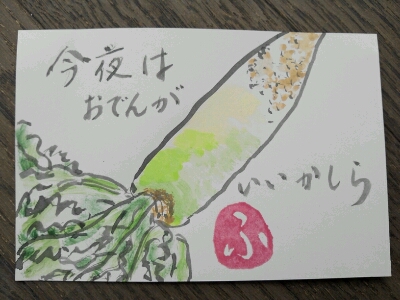 今夜は
おでんが
いいかしら
ふ